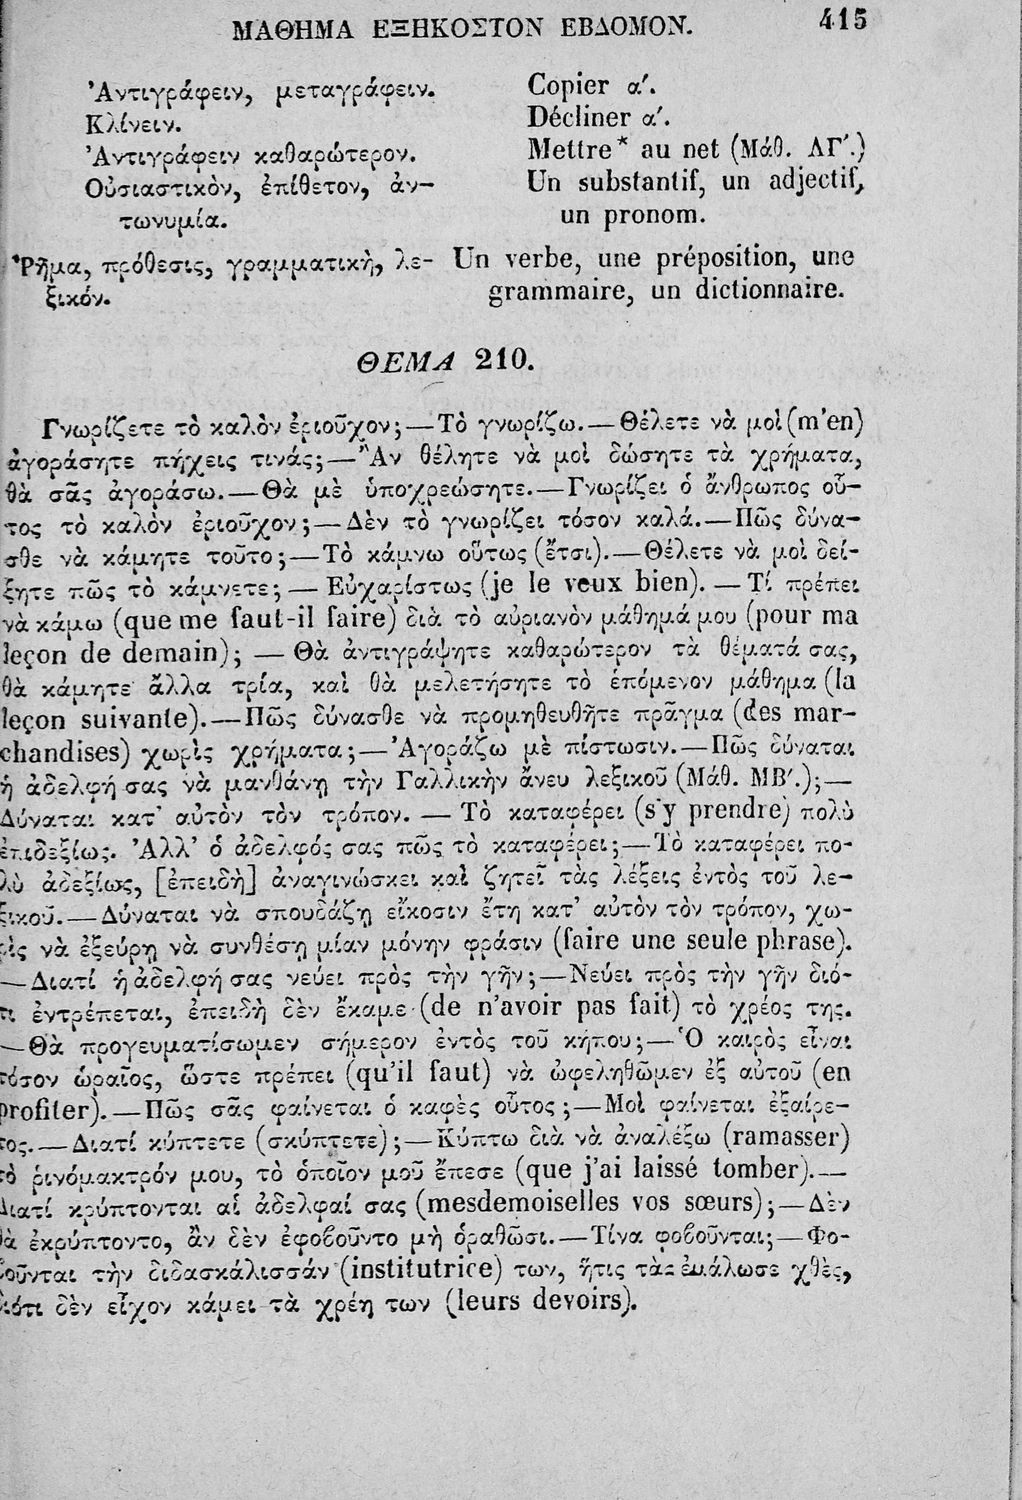 ΜΑΘΗΜΑ ΕΞΗΚΟΣΤΟΝ ΕΒΔΟΜΟΝ. 415
Ἀντιγράφειν, μεταγράφειν. Copier α΄.
Κλίνειν. Décliner α΄.
Ἀντιγράφειν καθαρώτερον. Mettre* au net (Μάθ. ΛΓ΄.)
Οὐσιαστικὸν, ἐπίθετον, ἀν- Un substantif, un adjectif,
τωνυμία. un pronom.
Ῥῆμα, πρόθεσις, γραμματικὴ, λε- Un verbe, une préposition, une
ξικόν. grammaire, un dictionnaire.
ΘΕΜΑ 210.
Γνωρίζετε τὸ καλὸν ἐριοῦχον;—Τὸ γνωρίζω.—Θέλετε νὰ μοὶ (m'en)
ἀγοράσητε πήχεις τινάς;—Ἂν θέλητε νὰ μοὶ δώσητε τὰ χρήματα,
θὰ σᾶς ἀγοράσω.—Θὰ μὲ ὑποχρεώσητε.—Γνωρίζει ὁ ἄνθρωπος οὗ-
τος τὸ καλὸν ἐριοῦχον;—Δὲν τὸ γνωρίζει τόσον καλά.—Πῶς δύνα-
σθε νὰ κάμητε τοῦτο;—Τὸ κάμνω οὕτως (ἔτσι).—Θέλετε νὰ μοὶ δεί-
ξητε πῶς τὸ κάμνετε;— Εὐχαρίστως (je le veux bien). — Τί πρέπει
νὰ κάμω (que me faut-il faire) διὰ τὸ αὐριανὸν μάθημά μου (pour ma
leçon de demain); — Θὰ ἀντιγράψητε καθαρώτερον τὰ θέματά σας,
θὰ κάμητε ἄλλα τρία, καὶ θὰ μελετήσητε τὸ ἑπόμενον μάθημα (la
leçon suivante).—Πῶς δύνασθε νὰ προμηθευθῆτε πρᾶγμα (des mar-
chandises) χωρὶς χρήματα;—Ἀγοράζω μὲ πίστωσιν.—Πῶς δύναται
ἡ ἀδελφή σας νὰ μανθάνῃ τὴν Γαλλικὴν ἄνευ λεξικοῦ (Μάθ. ΜΒ΄.);—
Δύναται κατ' αὐτὸν τὸν τρόπον. — Τὸ καταφέρει (s'y prendre) πολὺ
ἐπιδεξίως. Ἀλλ' ὁ ἀδελφός σας πῶς τὸ καταφέρει;—Τὸ καταφέρει πο-
λὺ ἀδεξίως, [ἐπειδὴ] ἀναγινώσκει καὶ ζητεῖ τὰς λέξεις ἐντὸς τοῦ λε-
ξικοῦ.—Δύναται νὰ σπουδάζῃ εἴκοσιν ἔτη κατ' αὐτὸν τὸν τρόπον, χω-
ρὶς νὰ ἐξεύρῃ νὰ συνθέσῃ μίαν μόνην φράσιν (faire une seule phrase).
—Διατί ἡ ἀδελφή σας νεύει πρὸς τὴν γῆν;—Νεύει πρὸς τὴν γῆν διό-
τι ἐντρέπεται, ἐπειδὴ δὲν ἔκαμε (de n'avoir pas fait) τὸ χρέος της.
—Θὰ προγευματίσωμεν σήμερον ἐντὸς τοῦ κήπου;—Ὁ καιρὸς εἶναι
τόσον ὡραῖος, ὥστε πρέπει (qu'il faut) νὰ ὠφεληθῶμεν ἐξ αὐτοῦ (en
profiter).—Πῶς σᾶς φαίνεται ὁ καφὲς οὗτος;—Μοὶ φαίνεται ἐξαίρε-
τος.—Διατί κύπτετε (σκύπτετε);—Κύπτω διὰ νὰ ἀναλέξω (ramasser)
τὸ ῥινόμακτρόν μου, τὸ ὁποῖον μοῦ ἔπεσε (que j'ai laissé tomber).—
Διατί κρύπτονται αἱ ἀδελφαί σας (mesdemoiselles vos sœurs);—Δὲν
θὰ ἐκρύπτοντο, ἂν δὲν ἐφοβοῦντο μὴ ὁραθῶσι.—Τίνα φοβοῦνται;—Φο-
βοῦνται τὴν διδασκάλισσάν (institutrice) των, ἥτις τὰς ἐμάλωσε χθὲς,
διότι δὲν εἶχον κάμει τὰ χρέη των (leurs devoirs).